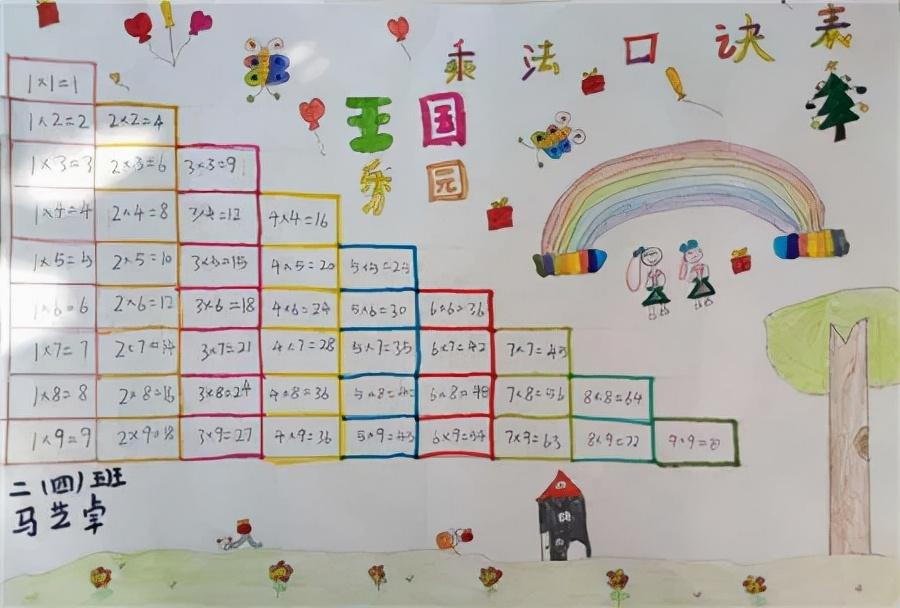 乘法口诀表
王国
乐园
1×1=1
1×2=2 2×2=4
1×3=3 2×3=6 3×3=9
1×4=4 2×4=8 3×4=12 4×4=16
1×5=5 2×5=10 3×5=15 4×5=20 5×5=25
1×6=6 2×6=12 3×6=18 4×6=24 5×6=30 6×6=36
1×7=7 2×7=14 3×7=21 4×7=28 5×7=35 6×7=42
1×8=8 2×8=16 3×8=24 4×8=36 5×8=40 6×8=48 7×8=56 8×8=64
1×9=9 2×9=18 3×9=27 4×9=36 5×9=45 6×9=54 7×9=63 8×9=72
二(四)班
马艺卓